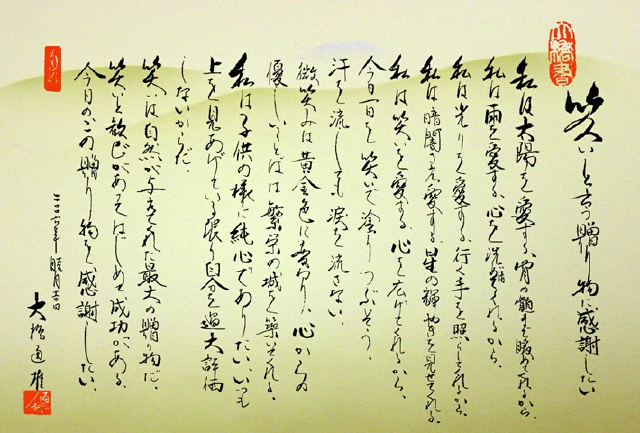 笑いと言う贈り物に感謝したい
私は太陽を愛する、骨の髄まで暖めてくれるから。
私は雨を愛する、心を洗
私は光りを愛する、行く手を照してくれるから。
私は暗闇さえ愛する、星の輝やきを見せてくれる。
私は笑いを愛する、心を広げてくれるから。
今日一日を笑いで塗りつぶそう。
汗を流しても涙を流さない。
微笑みは黄金色に変わり、心からの
優しいことばは繁栄の城を築いてくれる。
私は子供の様に純心でありたい、いつも
上を見あげている限り自分を過大評価
しないからだ。
笑いは自然が与えてくれた最大の贈り物だ。
笑いと歓びがあってはじめて成功がある。
今日のこの贈り物を感謝したい。
睦月吉日
大橋通雄